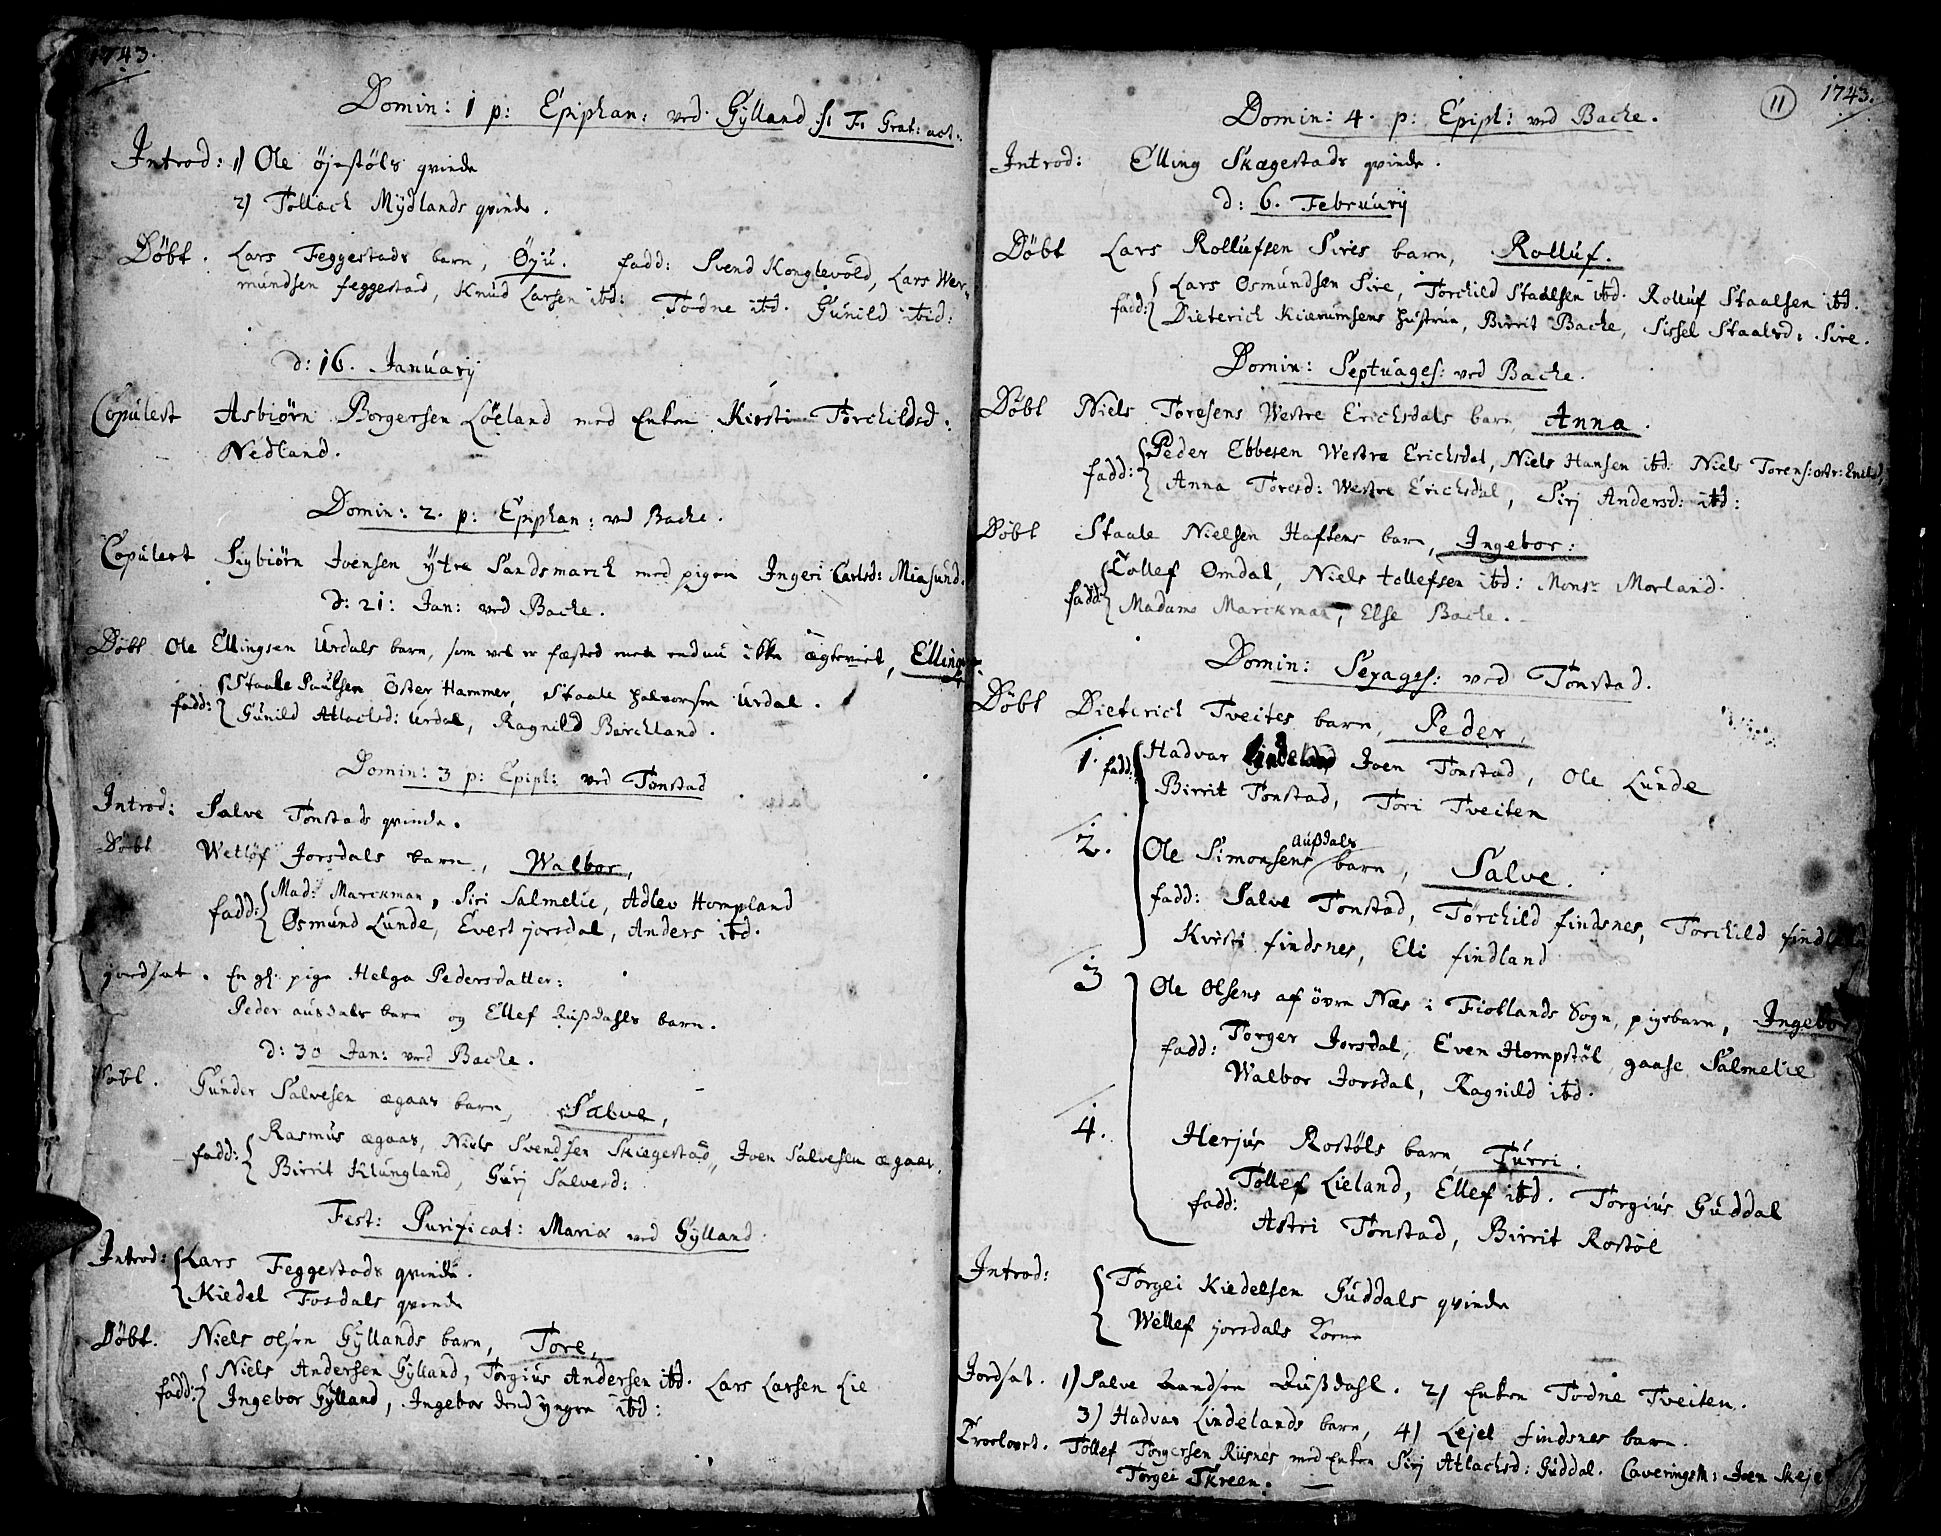 1743.
Domin: 1 p: Epiphan: ved Gylland /: F: Grat: act:
Introd: 1) Ole øjestøls qvinde
2) Tollach Mÿdlands qvinde.
Døbt. Lars Feggestads barn, Øziu. fadd: Svend Konglevold, Lars Wer-
mundsen feggestad, Knud Larsen ibd: Todne ibd. Gunild ibid:
d: 16. Januarij
Copulert Asbiørn Borgersen Löeland med Enken Kirsti Torchildsd:
Nedland.
Domin: 2. p: Epiphan: ved Bache.
Copulert Sigbiørn Joensen ÿtre Sandsmarck med pigen Ingeri Carlsd: Miasund.
d: 21: Jan: ved Bache.
Døbt Ole Ellingsen Urdals barn, som vel er fæsted men endnu ikke ægteviet, Elling
fadd: Staale Paulsen Öster Hammer, Staale Halvorsen Urdal.
Gunild Atlachsd: Urdal, Ragnild Barchland.
Domin: 3 p: Epiph: ved Tonstad
Introd: Salve Tonstads qvinde.
Døbt Wetlöf Jorsdals barn, Walbor,
fadd: Mad: Marckman, Siri Salmelie, Adlev Hompland
Osmund Lunde, Evert jorsdal, Anders ibd.
jordsat. En gl: pige Helga Pedersdatter:
Peder ausdals barn og Ellef Außdahls barn.
d: 30 Jan: ved Bache.
Døbt. Gunder Salvesen ægaas barn, Salve,
fadd: Rasmus ægaas, Niels Svendsen Skiegestad, Joen Salvesen ægaas.
Birrit Klungland, Guri Salvesd:
Fest: Purificat: Mariæ ved Gylland.
Introd: Lars Feggestads qvinde.
Kiedel Fosdals qvinde
Døbt. Niels olsen Gyllands barn, Tore,
fadd: Niels Andersen Gylland, Torgius Andersen ibd. Lars Larsen Lie
Ingebor Gylland, Ingebor dend yngre ibd:
11 1743.
Domin: 4. p: Epiph: ved Bache.
Introd: Elling Skægestads qvinde.
d: 6. Februarij
Døbt Lars Rollufsen Sires barn, Rolluf.
fadd: Lars Osmundsen Sire, Torchild Staalsen ibd. Rolluf Staalsen ibd.
Dieterich Kierumsens Hustrue, Birrit Bache, Sissel Staalsd: Sire.
Domin: Septuages: ved Bache.
Døbt Niels Toresens Westre Erichsdals barn, Anna.
fadd: Peder Ebbesen Westre Erichsdal, Niels Hansen ibd: Niels Torens:
Anna Toresd: Westre Erichsdal, Sirj Andersd: ibd:
Døbt Staale Nielsen Haftens barn, Ingebor:
fadd: Tollef Omdal, Niels tollefsen ibd: Monsr Morland.
Madame Marckman, Else Bache.
Domin: Sexages: ved Tonstad.
Døbt Dieterich Tveites barn, Peder,
1. fadd: Hadvar Joen Tonstad, Ole Lunde
Birrit Tonstad, Tori Tveiten
2. Ole Simonsens Außdals barn, Salve.
fadd: Salve Tonstad, Torchild findsnes, Torchild findland
Kirsti findsnes, Eli findland
3 Ole Olsens af övre Næs i Fiotlands Sogn, pigebarn, Ingebor
fadd: Torger Jorsdal, Even Hompstøl, gaase Salmelie
Walbor Jorsdal, Ragnild ibd.
4. Herjus Rostøls barn, Turri.
fadd: Tollef Lieland, Ellef ibd. Torgius Guddal
Astri Tonstad, Birrit Rostøl
Introd: Torgei Kiedelsen Guddals qvinde
Wellef jorsdals Kone
Jordsat. 1) Salve Außdahl. 2) Enken Todne Tveiten.
3) Hadvar Lindelands barn, 4) Lejel findsnes barn.
Troelovet. Tollef Torgersen Riisnes med Enken Sirj Atlachsd: Guddal. Caveringsm: Joen Skeje
Torgei Skreen.